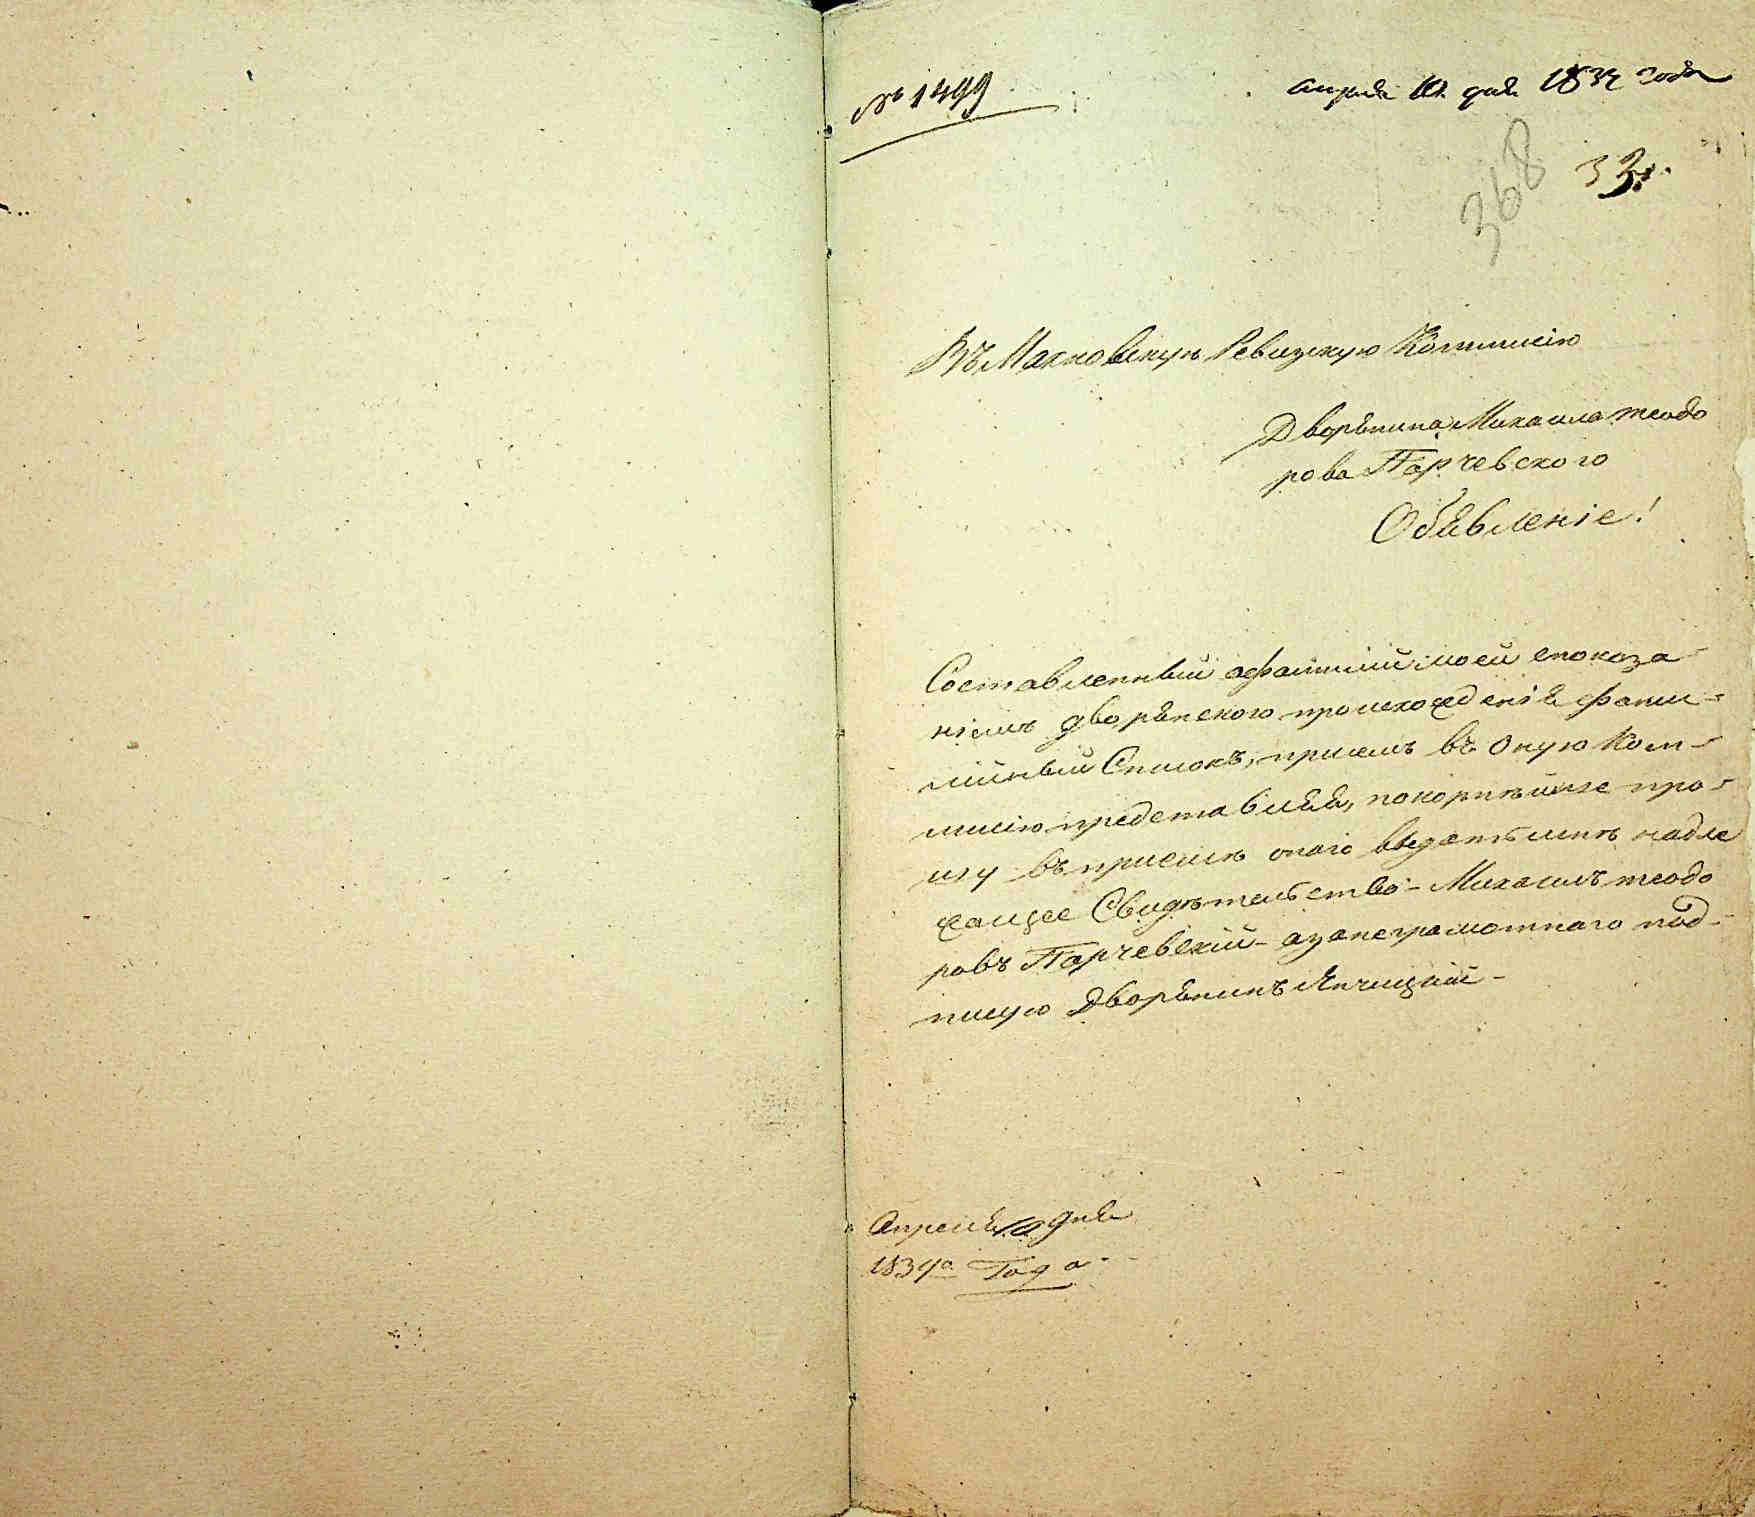 № 1499
апреля 10 дня 1834 года
368
33.
Въ Махновскую Ревизскую Коммисію
Дворянина Михаила Теодо
рова Парчевского
Обявленіе!
Составленный офамиліи моей спокоза-
ніемъ дворянского происхожденія фами-
лійный Списокъ, присемъ въ оную Ком-
мисію представляя, покорнѣйше про-
шу въ приемѣ оного выдать мнѣ надле
жащее Свидѣтельство - Михаилъ Теодо
ровъ Парчевскій - азанеграмотнаго под-
писую Дворянинъ
Апреля 10 дня
1834го Года